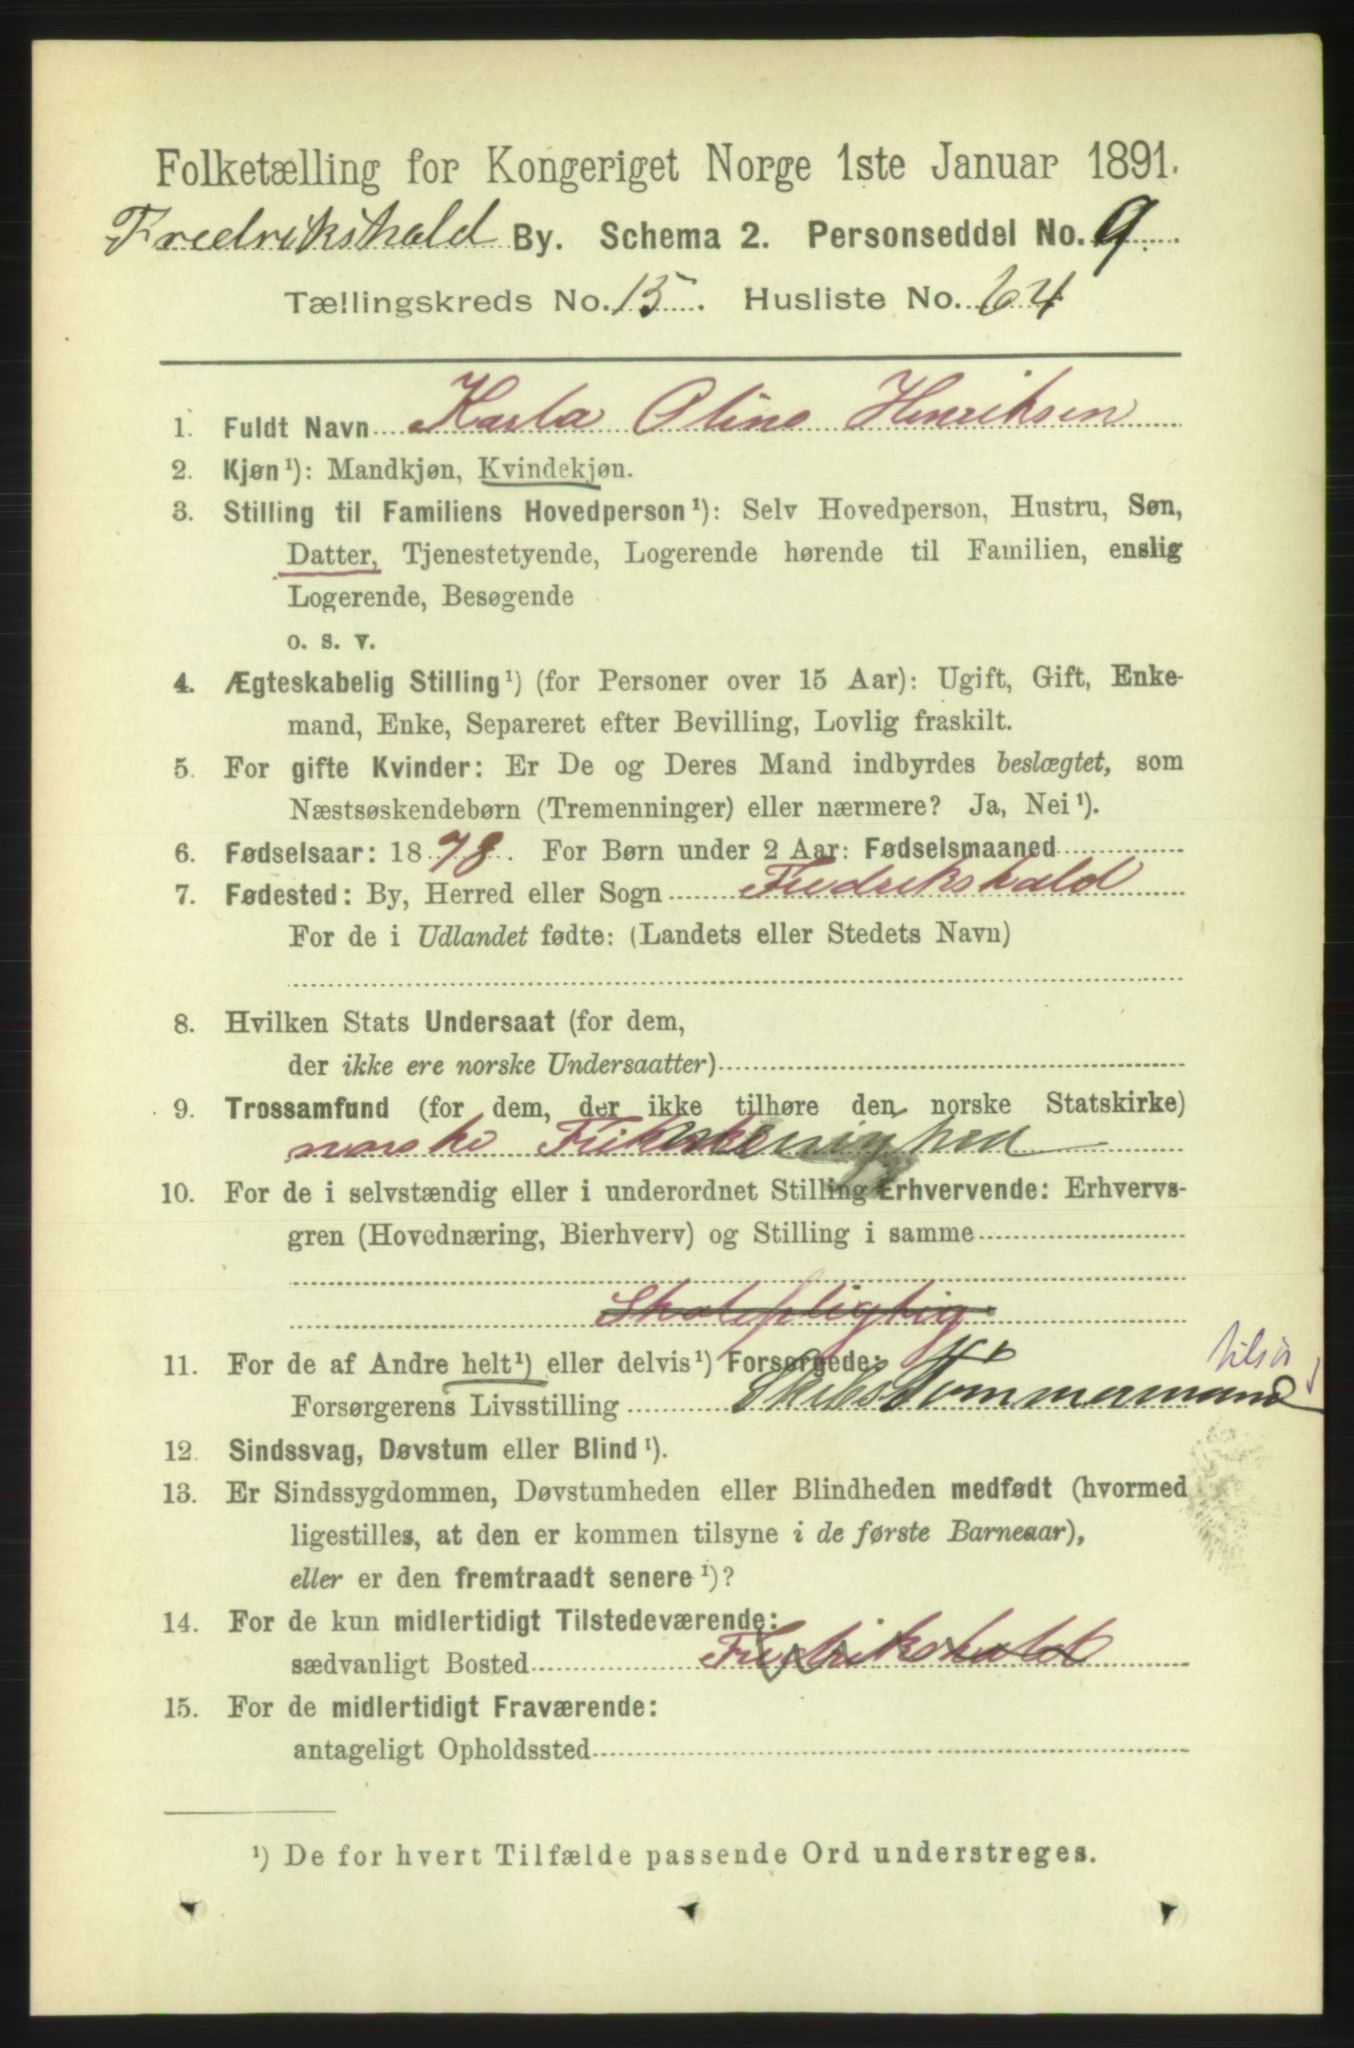 Folketælling for Kongeriget Norge 1ste Januar 1891.
Fredrikshald By. Schema 2. Personseddel No. 9.
Tællingskreds No. 15. Husliste No. 64
1. Fuldt Navn Karla Oline Henriksen
2. Kjøn ¹): Mandkjøn, Kvindekjøn.
3. Stilling til Familiens Hovedperson ¹): Selv Hovedperson, Hustru, Søn,
Datter, Tjenestetyende, Logerende hørende til Familien, enslig
Logerende, Besøgende
o. s. v.
4. Ægteskabelig Stilling ¹) (for Personer over 15 Aar): Ugift, Gift, Enke-
mand, Enke, Separeret efter Bevilling, Lovlig fraskilt.
5. For gifte Kvinder: Er De og Deres Mand indbyrdes beslægtet, som
Næstsøskendebørn (Tremenninger) eller nærmere? Ja, Nei ¹).
6. Fødselsaar: 1878. For Børn under 2 Aar: Fødselsmaaned
7. Fødested: By, Herred eller Sogn Fredrikshald
For de i Udlandet fødte: (Landets eller Stedets Navn)
8. Hvilken Stats Undersaat (for dem,
der ikke ere norske Undersaatter)
9. Trossamfund (for dem, der ikke tilhøre den norske Statskirke)
norske
10. For de i selvstændig eller i underordnet Stilling Erhvervende: Erhvervs-
gren (Hovednæring, Bierhverv) og Stilling i samme
Skolepligtig
11. For de af Andre helt ¹) eller delvis ¹) Forsørgede:
Forsørgerens Livsstilling Skibstømmermand
12. Sindssvag, Døvstum eller Blind ¹).
13. Er Sindssygdommen, Døvstumheden eller Blindheden medfødt (hvormed
ligestilles, at den er kommen tilsyne i de første Barneaar),
eller er den fremtraadt senere ¹)?
14. For de kun midlertidigt Tilstedeværende:
sædvanligt Bosted Fredrikshald
15. For de midlertidigt Fraværende:
antageligt Opholdssted
¹) De for hvert Tilfælde passende Ord understreges.